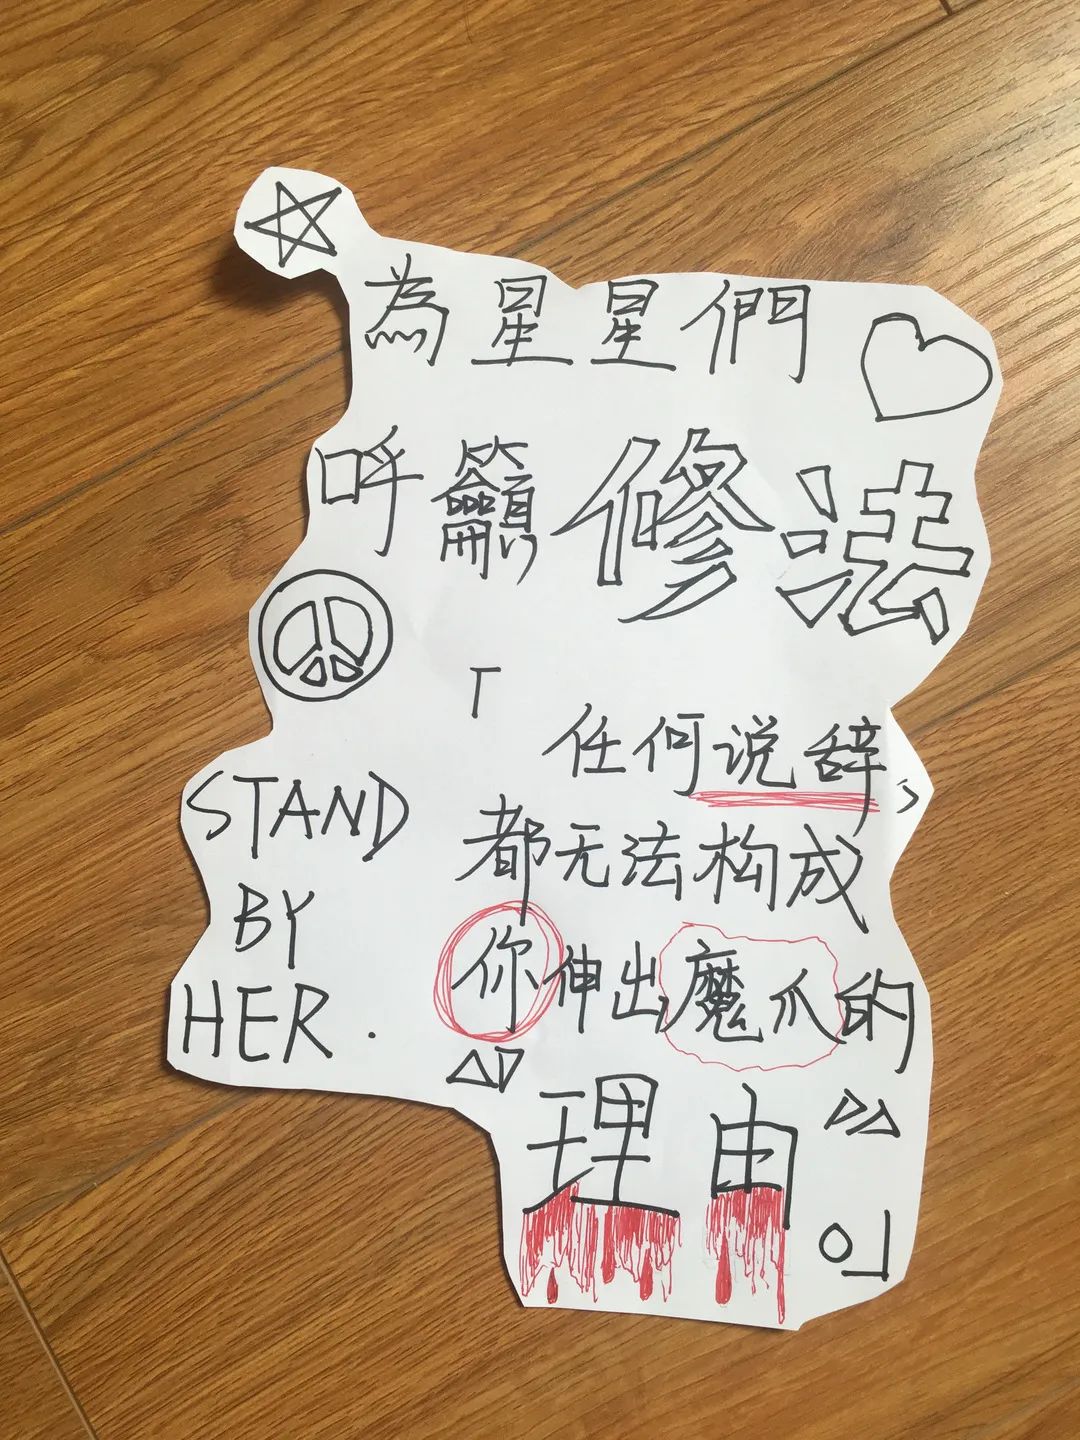 為星星們
呼籲修法
「任何说辞，
都无法构成
你伸出魔爪的
“理由”
。」
STAND
BY
HER.